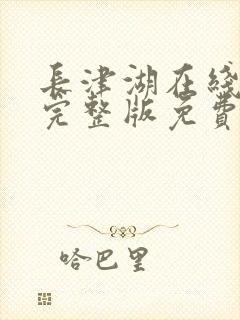 長津湖在綫
完整版免費
哈巴里